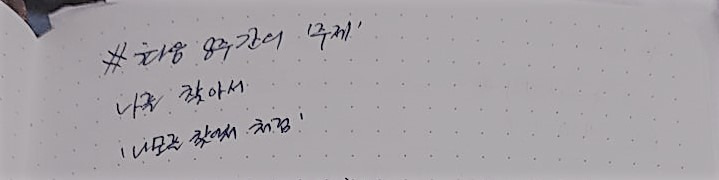 # 처음 8주간의 '주제'
나를 찾아서
'니모를 찾아서 처럼'